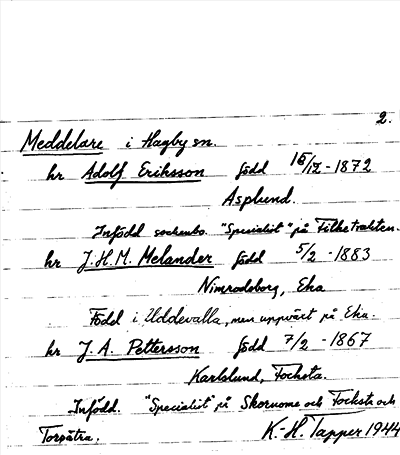 2.
Meddelare i Hagby sn.
hr Adolf Eriksson född 16/12 - 1872
Asplund.
Infödd sockenbo. "Specialist" på Filketrakten.
hr J.H.M. Melander född 5/2 - 1883
Nimrodsborg, Eka
Född i Uddevalla, men uppväxt på Eka.
hr J. A. Pettersson född 7/2 - 1867
Karlslund, Focksta.
Infödd. "Specialist" på Skornome och Focksta och
Torsätra. K.-H. Tapper 1944